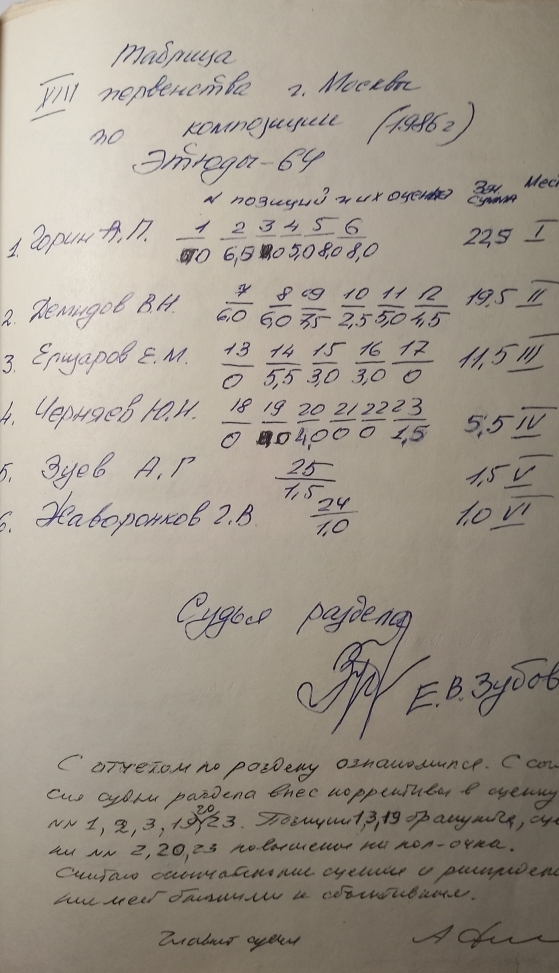 Таблица
XVIII первенства г. Москвы
по композиции (1986 г)
Этюды-64
N позиций и их оценка Зач. сумма Мес
1. Горин А.П. 1 2 3 4 5 6 22,5 I
0 6,5 0 5,0 8,0 8,0
2. Демидов В.Н. 7 8 9 10 11 12 19,5 II
6,0 6,0 7,5 2,5 5,0 4,5
3. Ершаров Е.М. 13 14 15 16 17 11,5 III
0 5,5 3,0 3,0 0
4. Черняев Ю.Н. 18 19 20 21 22 23 5,5 IV
0 0 4,0 0 0 1,5
5. Зуев А.Г 25 1,5 V
1,5
6. Жаворонков Г.В. 24 1,0 VI
1,0
Судья раздела
Е.В. Зубов
С отчетом по разделу ознакомился. С согл
сия судьи раздела внес коррективы в оценку
NN 1, 2, 3, 19, 20, 23. Позиции 1,3,19 бракуются, оце
ки NN 2, 20, 23 повышены на пол-очка.
Считаю окончательные оценки и распределе
ние мест близкими к объективным.
Главный судья